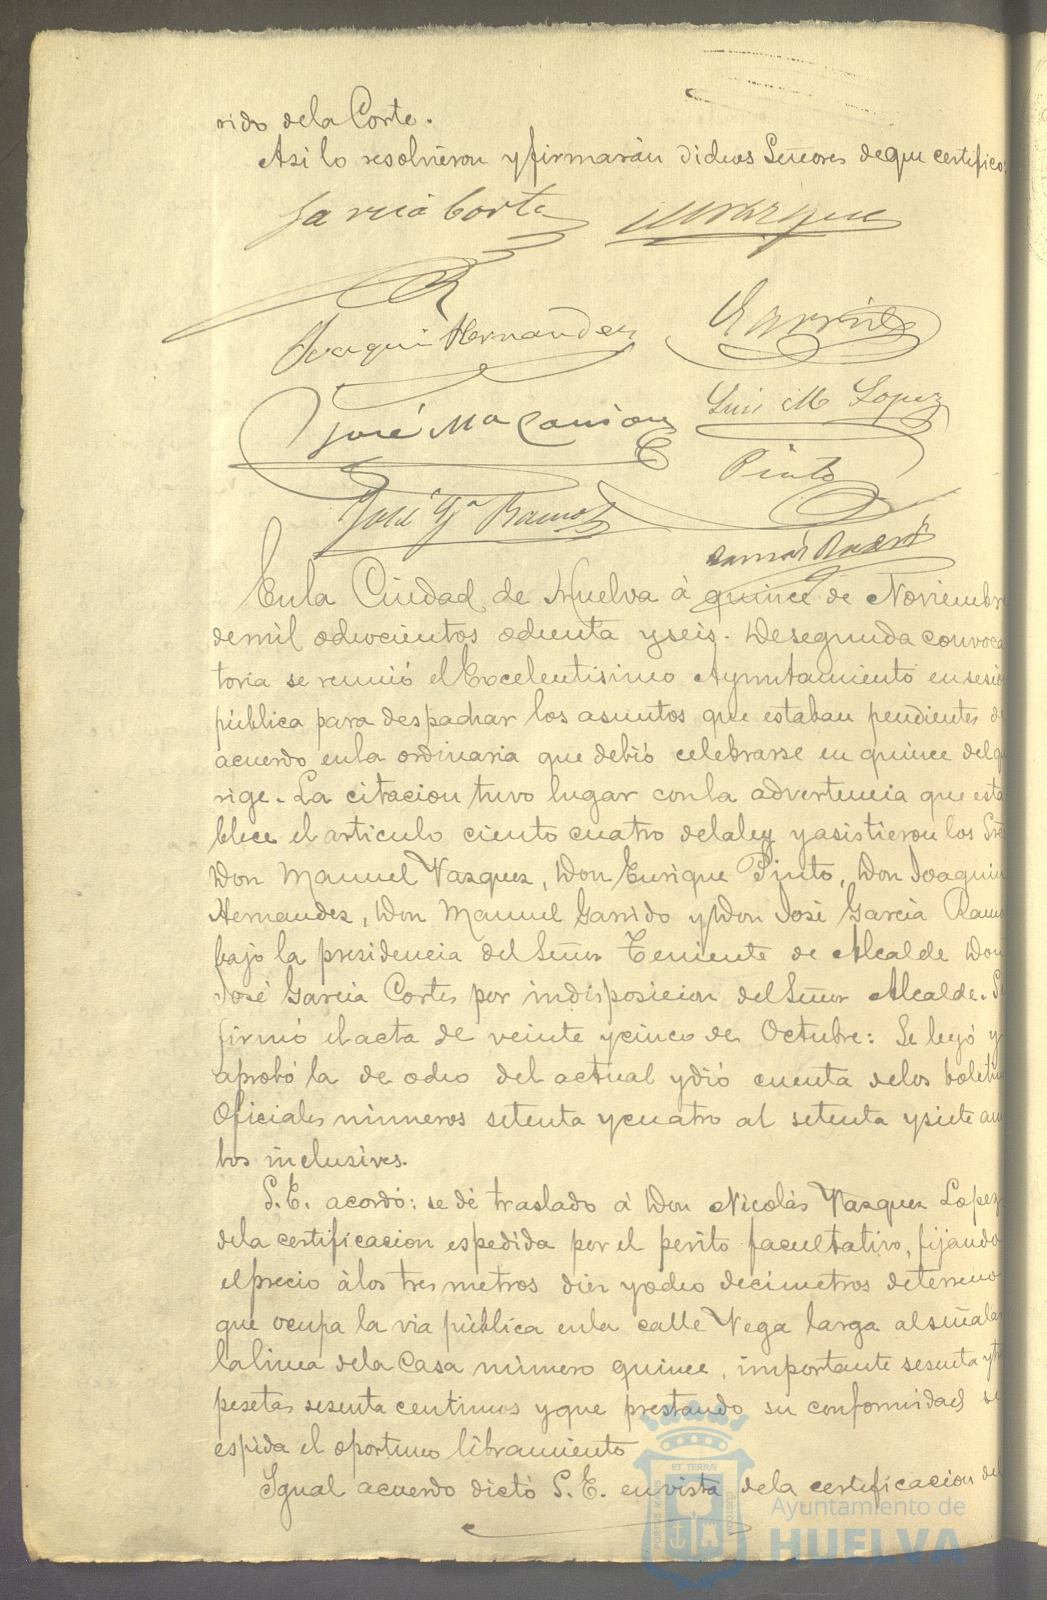 rido dela Corte.
Asi lo resolvieron y firmarán dichos Señores de que certifico.
Garcia Cortes Vazquez
Joaquin Hernandez Garrido
José Mª
Luis M Lopez
Pinto
José Gª Ramos
En la Ciudad de Huelva á quince de Noviembre
de mil ochocientos ochenta y seis. De segunda convoca
toria se reunió el Excelentisimo Ayuntamiento en sesió
pública para despachar los asuntos que estaban pendientes de
acuerdo en la ordinaria que debió celebrarse en quince del q
rige. La citacion tuvo lugar con la advertencia que esta
blece el articulo ciento cuatro de la ley y asistieron los Sres
Don Manuel Vazquez, Don Enrique Pinto, Don Joaquin
Hernandez, Don Manuel Garrido y Don José Garcia Ramo
bajo la presidencia del Señor Teniente de Alcalde Don
José Garcia Cortes por indisposicion del Señor Alcalde. Se
firmó el acta de veinte y cinco de Octubre: Se leyó y
aprobó la de ocho del actual y dió cuenta de los boletin
Oficiales números setenta y cuatro al setenta y siete am
bos inclusives.
S.E. acordó: se dé traslado á Don Nicolás Vazquez Lopez
de la certificacion espedida por el perito facultativo, fijando
el precio á los tres metros diez y ocho decimetros de terreno
que ocupa la via pública en la calle Vega larga al señalar
la linea de la Casa número quince, importante sesenta y tr
pesetas sesenta centimos y que prestando su conformidad se
espida el oportuno libramiento
Igual acuerdo dictó S.E. en vista de la certificacion del
ET TERRÆ
PORTUS MARIS
CUSTODIA
Ayuntamiento de
HUELVA